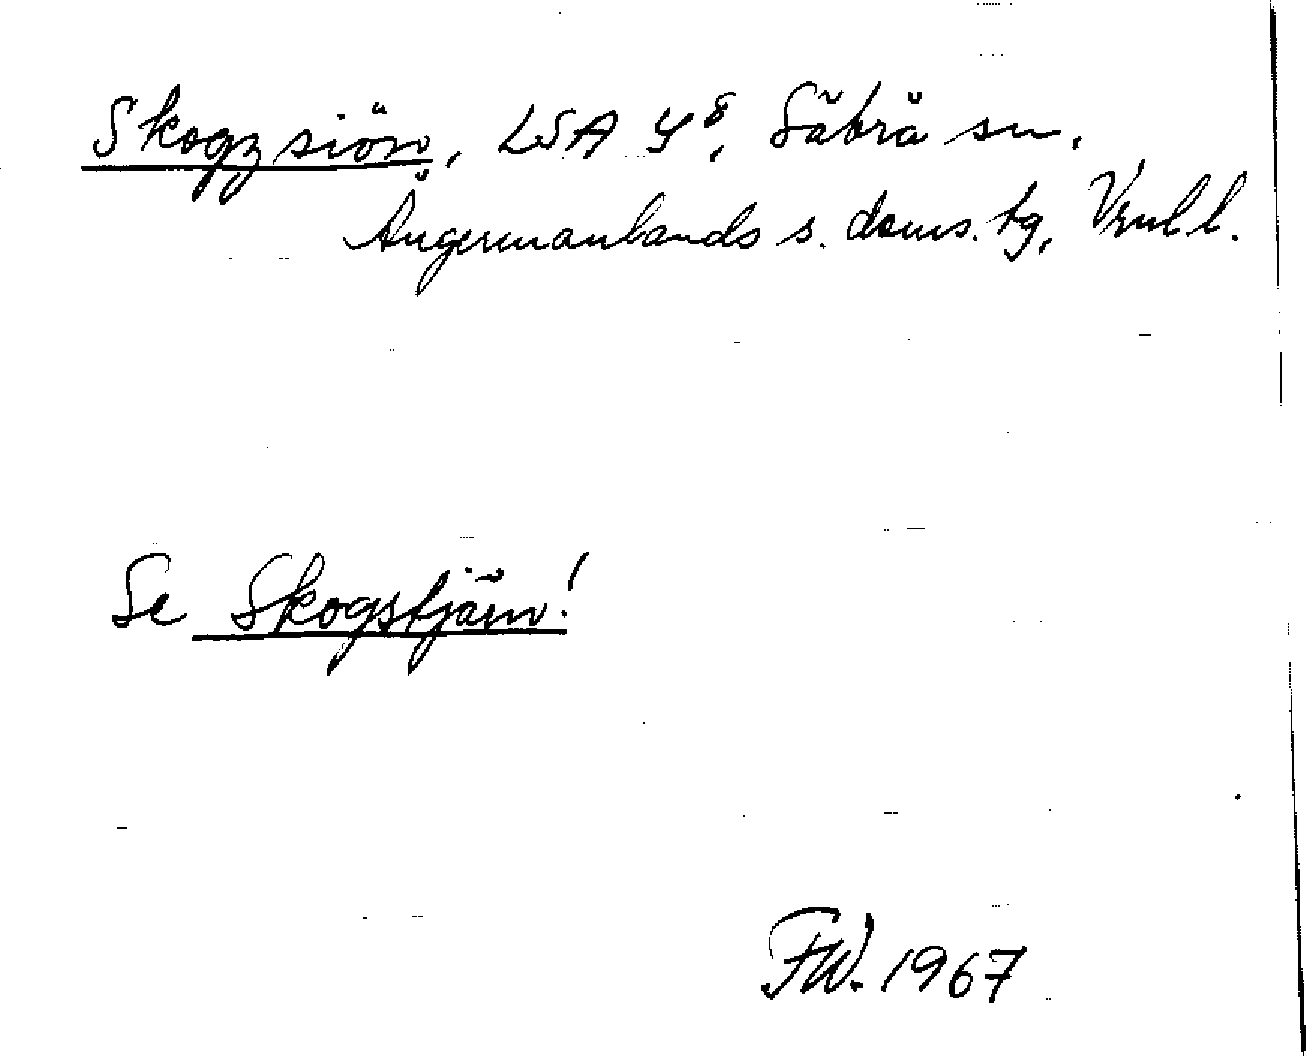 Skogz siön, LSA Y⁸, Säbrå sn,
Ångermanlands s. doms. tg, Vrnl l.
Se Skogstjärn!
FW. 1967